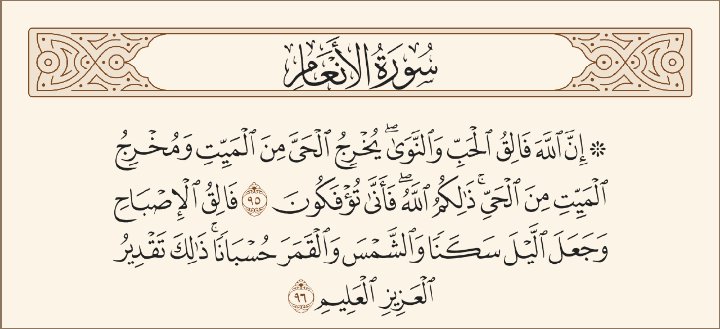 سُورَةُ الأَنْعَامِ
۞ إِنَّ ٱللَّهَ فَالِقُ ٱلْحَبِّ وَٱلنَّوَىٰۖ يُخْرِجُ ٱلْحَيَّ مِنَ ٱلْمَيِّتِ وَمُخْرِجُ
ٱلْمَيِّتِ مِنَ ٱلْحَيِّۚ ذَٰلِكُمُ ٱللَّهُۖ فَأَنَّىٰ تُؤْفَكُونَ ٩٥ فَالِقُ ٱلْإِصْبَاحِ
وَجَعَلَ ٱلَّيْلَ سَكَنًا وَٱلشَّمْسَ وَٱلْقَمَرَ حُسْبَانًاۚ ذَٰلِكَ تَقْدِيرُ
ٱلْعَزِيزِ ٱلْعَلِيمِ ٩٦